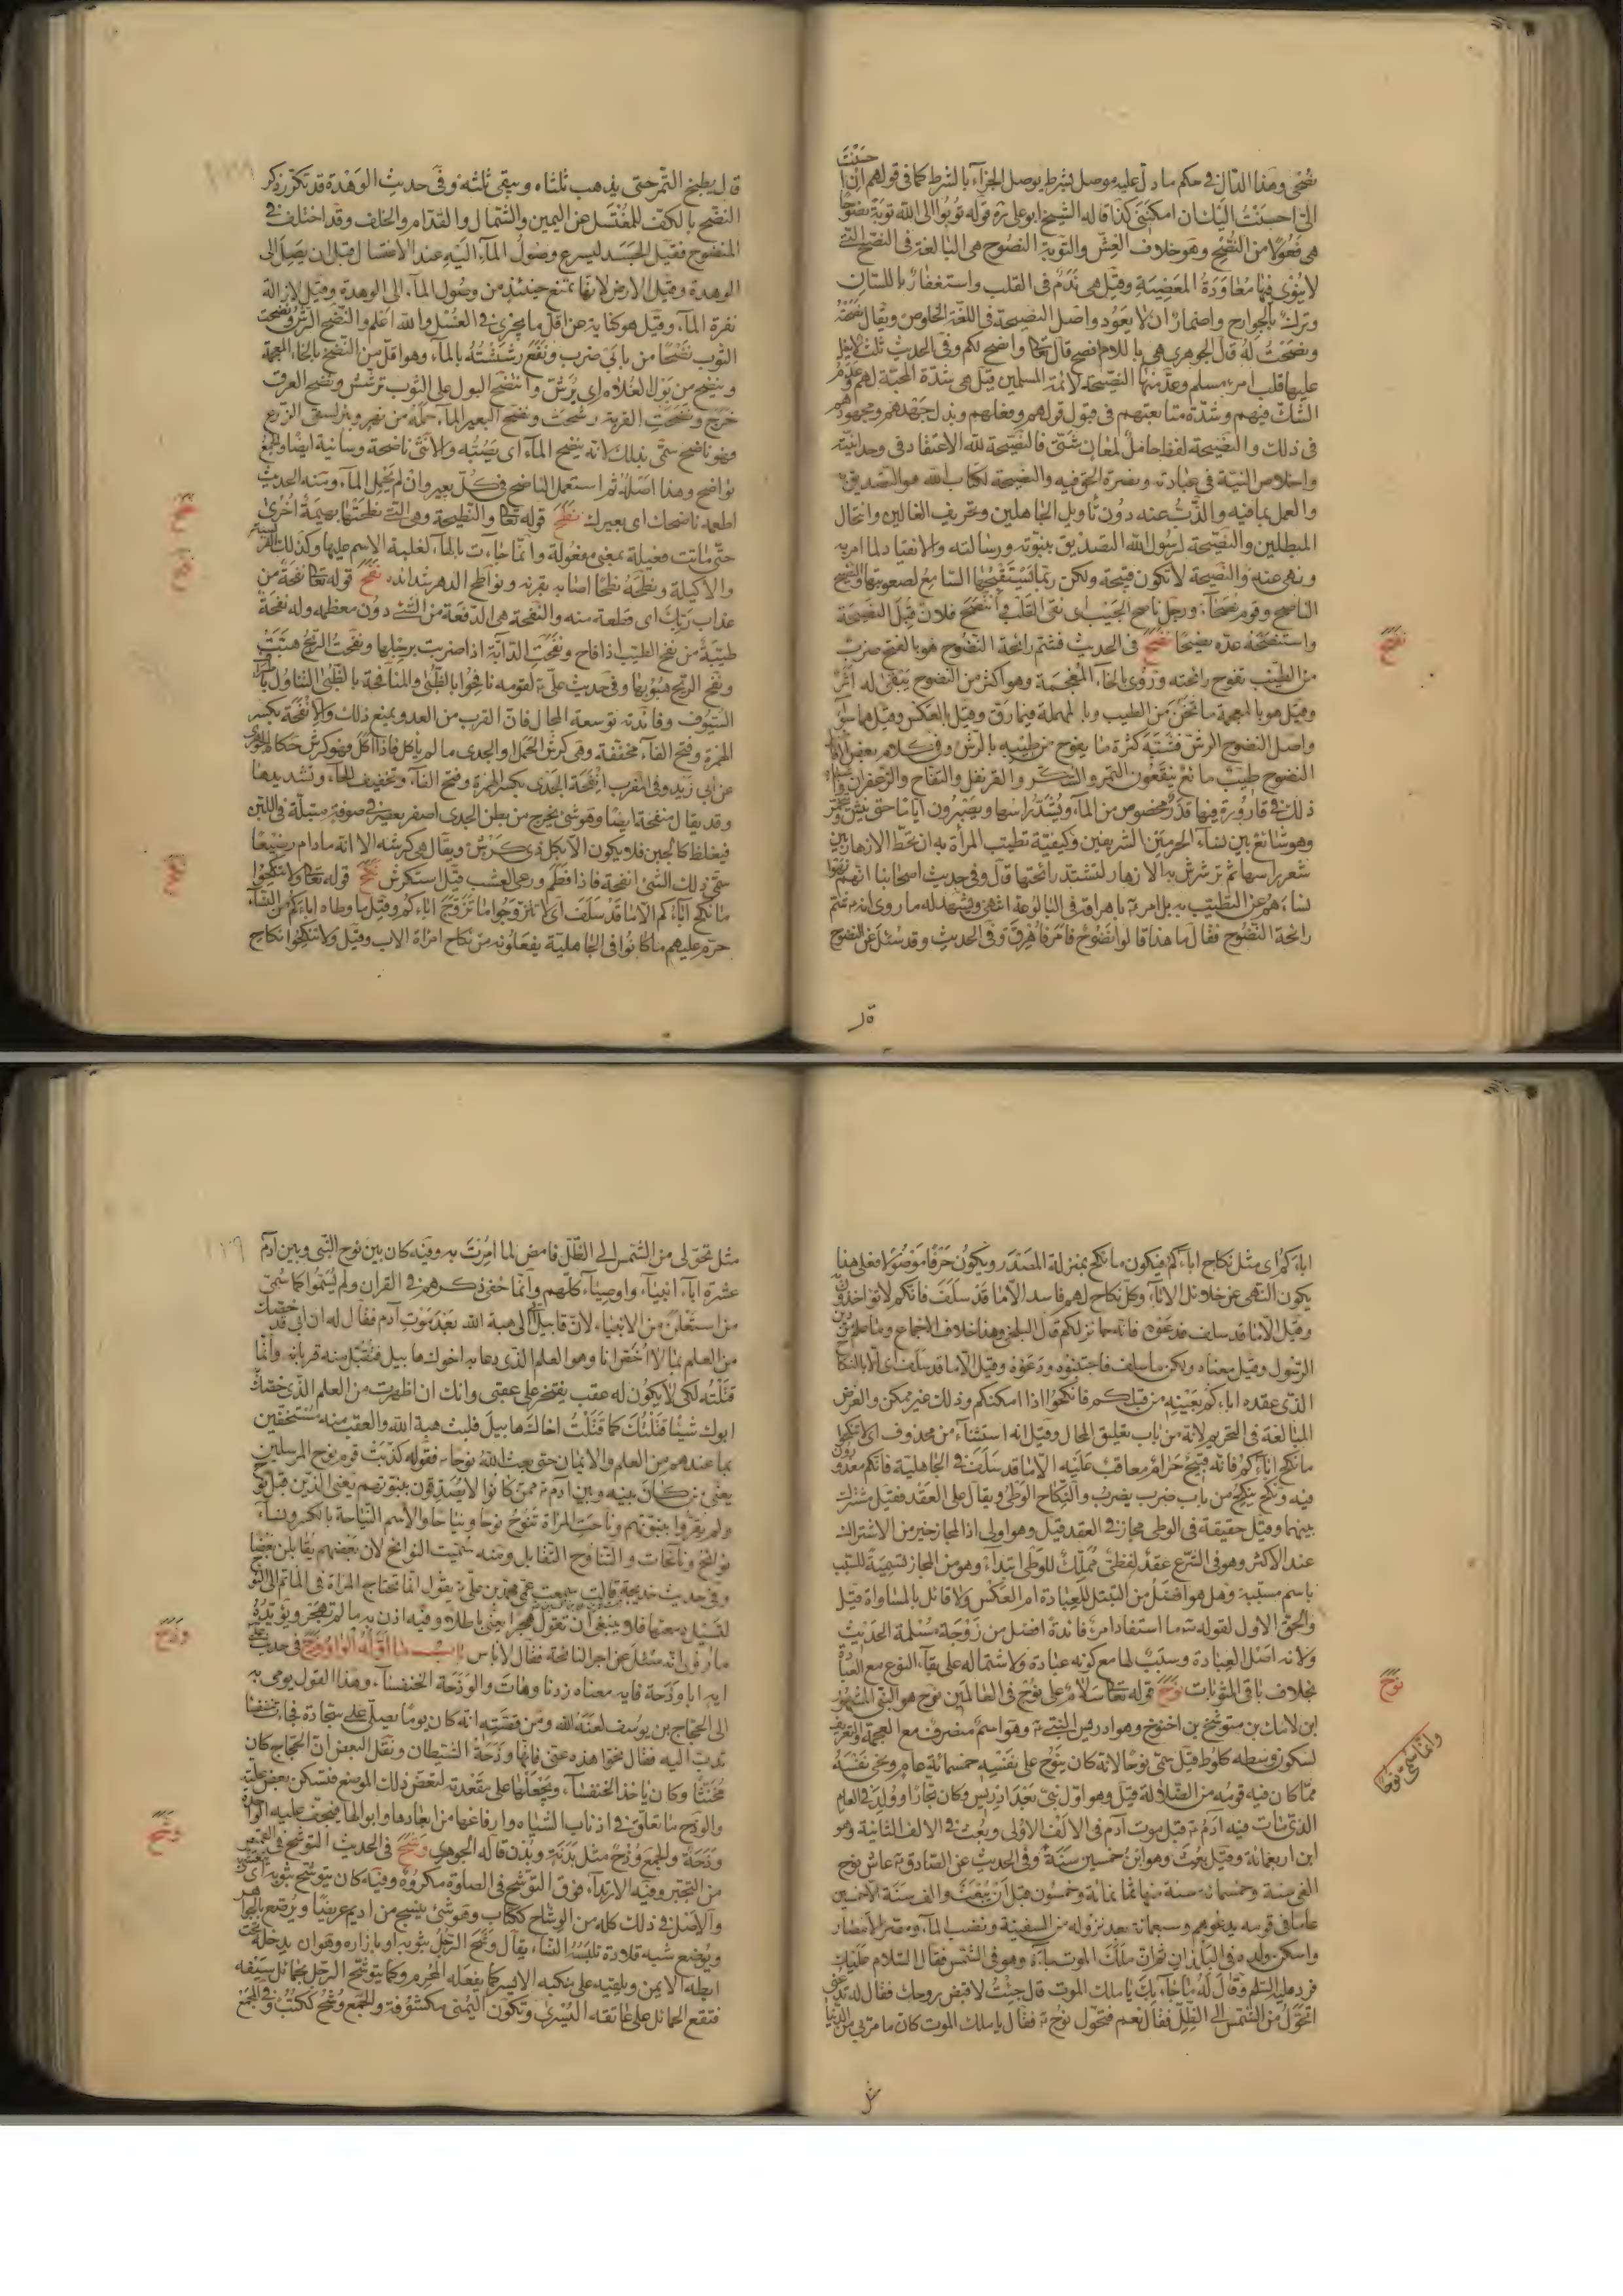 نصحى وهذا الدال في حكم ما دل عليه موصل بشرط يوصل الجزاء بالشرط كما في قولهم ان احسنت
الى احسنت اليك ان امكننى كذا قاله الشيخ ابو على ره قوله توبوا الى الله توبة نصوحا
هى فعولا من النصح وهو خلاف الغش والتوبة النصوح هى البالغة في النصح التى
لا ينوى فيها معاودة المعصية وقيل هى ندم في القلب واستغفار باللسان
وترك بالجوارح واضمار ان لا يعود واصل النصيحة في اللغة الخلوص ويقال نصحته
ونصحت له قال الجوهرى هى باللام افصح قال تعالى وانصح لكم وفي الحديث ثلث لا يغل
عليها قلب امرء مسلم وعد منها النصيحة لائمة المسلمين قيل هى شدة المحبة لهم وعدم
الشك فيهم وشدة متابعتهم في قبول قولهم وفعلهم وبذل جهدهم ومجهودهم
في ذلك والنصيحة لفظ حامل لمعان شتى فالنصيحة لله الاعتقاد في وحدانيته
واخلاص النية في عبادته ونصرة الحق فيه والنصيحة لكتاب الله هو التصديق به
والعمل بما فيه والذب عنه دون تأويل الجاهلين وتحريف الغالين وانتحال
المبطلين والنصيحة لرسول الله التصديق بنبوته ورسالته والانقياد لما امر به
ونهى عنه والنصيحة لا تكون قبيحة ولكن ربما يستقبحها السامع لصعوبتها والنصيح
الناصح وقوم نصحاء ورجل ناصح الجيب اى نقى القلب وانتصح فلان قبل النصيحة
واستنصحه عده نصيحا نضح في الحديث فشم رائحة النضوح هو بالفتح ضرب
من الطيب تفوح رائحته وروى بالخاء المعجمة وهو اكثر من النضوح يبقى له اثر
وقيل هو بالمعجمة ما ثخن من الطيب وبالمهملة فيما رق وقيل بالعكس وقيل هما سواء
واصل النضوح الرش فشبه كثرة ما يفوح من طيبه بالرش وفي كلام بعض
النضوح طيب مائع ينقعون التمر والسكر والقرنفل والتفاح والزعفران
ذلك في قارورة فيها قدر مخصوص من الماء ويشد راسها ويصبرون اياما حتى ينش
وهو شائع بين نساء الحرمين الشريفين وكيفية تطيب المرأة به ان تحط الازهار بين
شعر راسها ثم ترشرش به الازهار لتشتد رائحتها قال وفي حديث اصحابنا انهم نهوا
نساءهم عن التطيب به بل امر بإهراقه في البالوعة انتهى ويشهد له ما روى انه شم
رائحة النضوح فقال ما هذا قالوا نضوح فامر فاهرق وفي الحديث وقد سئل عن النضوح
قال
قال يطبخ التمر حتى يذهب ثلثاه ويبقى ثلثه وفي حديث الوهدة قد تكرر ذكر
النضح بالكف للمغتسل عن اليمين والشمال والقدام والخلف وقد اختلف في
المنضوح فقيل الجسد ليسرع وصول الماء اليه عند الاغتسال قبل ان يصل الى
الوهدة وقيل الارض لانها تمنع حينئذ من وصول الماء الى الوهدة وقيل لازالة
نفرة الماء وقيل هو كناية عن اقل ما يجزى في الغسل والله اعلم والنضح الرش ونضحت
الثوب نضحا من بابى ضرب ونفع رششته بالماء وهو اقل من النضخ بالخاء المعجمة
وينضح من بول الغلام اى يرش وانتضح البول على الثوب ترشش ونضح العرق
خرج ونضحت القربة رشحت ونضح البعير الماء حمله من نهر وبئر لسقى الزرع
وهو ناضح سمى بذلك لانه ينضح الماء اى يصبه والانثى ناضحة وسانية ايضا والجمع
نواضح وهذا اصله ثم استعمل الناضح في كل بعير وان لم يحمل الماء ومنه الحديث
اطعمه ناضحك اى بعيرك نطح قوله تعالى والنطيحة وهى التى نطحتها بهيمة اخرى
حتى ماتت فعيلة بمعنى مفعولة وانما جاءت بالهاء لغلبة الاسم عليها وكذلك الفريسة
والاكيلة ونطحه نطحا اصابه بقرنه ونواطح الدهر شدائده نفح قوله تعالى نفحة من
عذاب ربك اى قطعة منه والنفحة هى الدفعة من الشئ دون معظمه وله نفحة
طيبة من نفح الطيب اذا فاح ونفحت الدابة اذا ضربت برجلها ونفحت الريح هبت
ونفح الريح هبوبها وفي حديث على لقومه نافحوا بالظبى والمنافحة بالظبى التناول باطراف
السيوف وفائدته توسعة المجال فان القرب من العدو يمنع ذلك والانفحة بكسر
الهمزة وفتح الفاء مخففة وهى كرش الحمل والجدى ما لم يأكل فاذا اكل فهو كرش حكاه الجوهرى
عن ابى زيد وفي المغرب انفحة الجدى بكسر الهمزة وفتح الفاء وتخفيف الحاء وتشديدها
وقد يقال منفحة ايضا وهو شئ يخرج من بطن الجدى اصفر يعصر في صوفة مبتلة في اللبن
فيغلظ كالجبن فلا يكون الا لكل ذى كرش ويقال هى كرشه الا انه ما دام رضيعا
سمى ذلك الشئ انفحة فاذا فطم ورعى العشب قيل استكرش نكح قوله تعالى ولا تنكحوا
ما نكح آباءكم الا ما قد سلف اى لا تتزوجوا ما تزوج اباءكم وقيل ما وطاه اباءكم من النساء
حرم عليهم ما كانوا في الجاهلية يفعلونه من نكاح امراة الاب وقيل ولا تنكحوا نكاح
اباءكم اى مثل نكاح اباءكم فيكون ما نكح بمنزلة المصدر ويكون حرفا موصولا فعلى هذا
يكون النهى عن حلائل الاباء وكل نكاح لهم فاسد الا ما قد سلف فانكم لا تؤاخذون
وقيل الا ما قد سلف فدعوه فانه جائز لكم قال البلخى وهذا خلاف الاجماع وما علم من دين
الرسول وقيل معناه ولكن ما سلف فاجتنبوه ودعوه وقيل الا ما قد سلف اى الا بالنكاح
الذى عقده اباءكم بعينه من قبلكم فانكحوا اذا امكنكم وذلك غير ممكن والغرض
المبالغة في التحريم لانه من باب تعليق المحال وقيل انه استثناء من محذوف اى لا تنكحوا
ما نكح اباءكم فانه قبيح حرام معاقب عليه الا ما قد سلف في الجاهلية فانكم معذورون
فيه ونكح ينكح من باب ضرب يضرب والنكاح الوطئ ويقال على العقد فقيل مشترك
بينهما وقيل حقيقة في الوطى مجاز في العقد قيل وهو اولى اذ المجاز خير من الاشتراك
عند الاكثر وهو في الشرع عقد لفظى مملك للوطى ابتداء وهو من المجاز تسمية للسبب
باسم مسببه وهل هو افضل من التبتل للعبادة ام العكس ولا قائل بالمساواة قيل
والحق الاول لقوله ما استفاد امرء فائدة افضل من زوجة مسلمة الحديث
ولانه اصل العبادة وسبب لها مع كونه عبادة ولاشتماله على بقاء النوع مع العبادة
بخلاف باقى المثوبات نوح قوله تعالى سلام على نوح في العالمين نوح هو النبى المشهور
ابن لامك بن متوشلخ بن اخنوخ وهو ادريس النبى وهو اسم منصرف مع العجمة والتعريف
لسكون وسطه كلوط قيل سمى نوحا لانه كان ينوح على نفسه خمسمائة عام ونحى نفسه
مما كان فيه قومه من الضلالة قيل وهو اول نبى بعد ادريس وكان نجارا وولد في العام
الذى مات فيه آدم قبل موت آدم في الالف الاولى وبعث في الالف الثانية وهو
ابن اربعمائة وقيل بعث وهو ابن خمسين سنة وفي الحديث عن الصادق عاش نوح
الفى سنة وخمسمائة سنة منها ثمانمائة وخمسون قبل ان يبعث والف سنة الا خمسين
عاما في قومه يدعوهم وسبعمائة بعد نزوله من السفينة ونضب الماء ومصر الامصار
واسكن ولده في البلدان ثم ان ملك الموت جاءه وهو في الشمس فقال السلام عليك
فرد عليه السلم وقال له ما جاء بك يا ملك الموت قال جئت لاقبض روحك فقال له تدعنى
اتحول من الشمس الى الظل فقال نعم فتحول نوح فقال يا ملك الموت كان ما مر بى من الدنيا
مثل
مثل تحولى من الشمس الى الظل فامض لما امرت به وفيه كان بين نوح النبى وبين آدم
عشرة اباء انبياء واوصياء كلهم وانما خفى ذكرهم في القران ولم يسموا كما سمى
من استعلن من الانبياء لان قابيل اتى هبة الله بعد موت آدم فقال له ان ابى قد خصك
من العلم بما لا اخص انا وهو العلم الذى دعا به اخوك هابيل فتقبل منه قربانه وانما
قتلته لكى لا يكون له عقب يفتخر على عقبى وانك ان اظهرت من العلم الذى خصك
ابوك شيئا قتلتك كما قتلت اخاك هابيل فلبث هبة الله والعقب منه مستخفين
بما عندهم من العلم والايمان حتى بعث الله نوحا فقوله كذبت قوم نوح المرسلين
يعنى من كان بينه وبين آدم ممن كانوا لا يصدقون بنبوتهم يعنى الذين قبل نوح
ولم يقروا بنبوتهم وناحت المراة تنوح نوحا ونياحا والاسم النياحة بالكسر ونساء
نوائح ونائحات والتناوح التقابل ومنه سميت النوائح لان بعضهم يقابلن بعضا
وفي حديث خديجة قالت سمعت عمى محمد بن على يقول انما تحتاج المراة في المأتم الى النوح
لتسيل دمعتها فلا ينبغى ان تقول هجرا يعنى باطلا وفيه اذن به ما لم تهجر ويؤيده
ما روى انه سئل عن اجر النائحة فقال لا باس باب ما اوله الواو وذح في حديث على
ايه ابا وذحة فايه معناه زدنا وهات والوذحة الخنفساء وهذا القول يومى به
الى الحجاج بن يوسف لعنه الله ومن قصته انه كان يوما يصلى على سجادة فجاءت خنفساء
تدب اليه فقال نحوا هذه عنى فانها وذحة الشيطان ونقل البعض ان الحجاج كان
مخنثا وكان ياخذ الخنفساء ويجعلها على مقعدته لتعض ذلك الموضع فتسكن بعض علته
والوذح ما تعلق في اذناب الشياه وارفاغها من ابعارها وابوالها فيجف عليه الواحدة
وذحة والجمع وذح مثل بدنة وبدن قاله الجوهرى وشح في الحديث التوشح في القميص
من التجبر وفيه الارتداء فوق التوشح في الصلوة مكروه وفيه كان يتوشح بثوبه اى يتغشى
والاصل في ذلك كله من الوشاح ككتاب وهو شئ ينسج من اديم عريضا ويرصع بالجواهر
ويوضع شبه قلادة تلبسه النساء يقال وشح الرجل بثوبه او بازاره وهو ان يدخله تحت
ابطه الايمن ويلقيه على منكبه الايسر كما يفعله المحرم وكما يتوشح الرجل بحمائل سيفه
فتقع الحمائل على عاتقه اليسرى وتكون اليمنى مكشوفة والجمع وشح ككتب وفي المجمع
نضح
نطح
نفح
نكح
نوح
وانما سمى نوحا
وذح
وشح
١٢٩